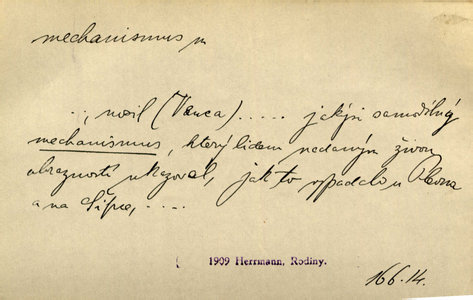 mechanismus m
.., nosil (Vanca)..... jakýsi samodílný
mechanismus, který lidem nedaným živou
obrazností ukazoval, jak to vypadalo u
a na Šipce, .....
1909 Herrmann, Rodiny.
166.14.